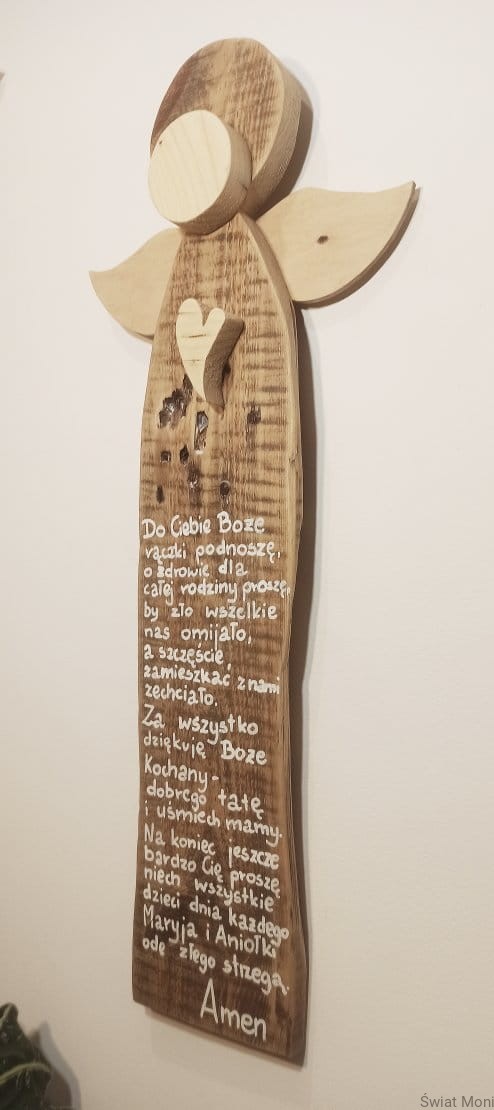 Do Ciebie Boże
rączki podnoszę,
o zdrowie dla
całej rodziny proszę,
by zło wszelkie
nas omijało,
a szczęście,
zamieszkać z nami
zechciało.
Za wszystko
dziękuję Boże
Kochany-
dobrego tatę
i uśmiech mamy.
Na koniec jeszcze
bardzo Cię proszę
niech wszystkie
dzieci dnia każdego
Maryja i Aniołki
ode złego strzegą.
Amen
Świat Moni